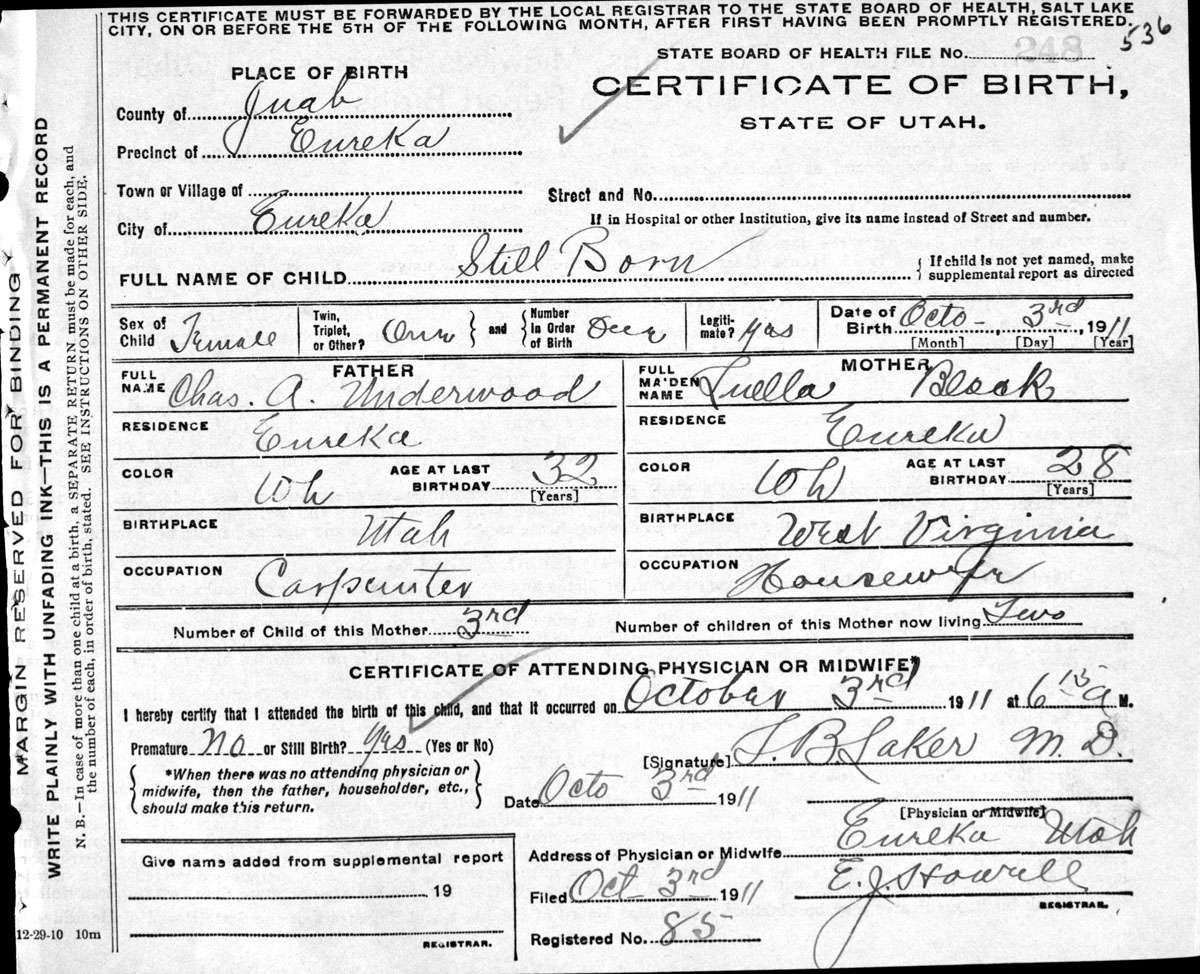 THIS CERTIFICATE MUST BE FORWARDED BY THE LOCAL REGISTRAR TO THE STATE BOARD OF HEALTH, SALT LAKE
CITY, ON OR BEFORE THE 5TH OF THE FOLLOWING MONTH, AFTER FIRST HAVING BEEN PROMPTLY REGISTERED.
536
STATE BOARD OF HEALTH FILE No. 248
PLACE OF BIRTH
CERTIFICATE OF BIRTH,
STATE OF UTAH.
County of Juab
Precinct of Eureka
Town or Village of
Street and No.
City of Eureka
If in Hospital or other Institution, give its name instead of Street and number.
FULL NAME OF CHILD Still Born
{ If child is not yet named, make
supplemental report as directed
Sex of Child Female
Twin, Triplet, or Other? One } and { Number in Order of Birth
Legiti-mate? Yes
Date of Birth Octo 3rd, 1911
[Month] [Day] [Year]
FATHER
FULL NAME Chas. A. Underwood
MOTHER
FULL MAIDEN NAME Luella Black
RESIDENCE Eureka
RESIDENCE Eureka
COLOR Wh AGE AT LAST BIRTHDAY 32 [Years]
COLOR Wh AGE AT LAST BIRTHDAY 28 [Years]
BIRTHPLACE Utah
BIRTHPLACE West Virginia
OCCUPATION Carpenter
OCCUPATION Housewife
Number of Child of this Mother 3rd
Number of children of this Mother now living Two
CERTIFICATE OF ATTENDING PHYSICIAN OR MIDWIFE*
I hereby certify that I attended the birth of this child, and that it occurred on October 3rd 1911 at 6 15 a M.
Premature No or Still Birth? Yes (Yes or No)
[Signature] M. D.
{ *When there was no attending physician or
midwife, then the father, householder, etc.,
should make this return. }
Date Octo 3rd 1911
[Physician or Midwife]
Address of Physician or Midwife Eureka Utah
Give name added from supplemental report
19
REGISTRAR.
Filed Oct 3rd 1911 E. J. Howell
REGISTRAR.
Registered No. 85
12-29-10 10m
MARGIN RESERVED FOR BINDING
WRITE PLAINLY WITH UNFADING INK—THIS IS A PERMANENT RECORD
N. B.—In case of more than one child at a birth, a SEPARATE RETURN must be made for each, and
the number of each, in order of birth, stated. SEE INSTRUCTIONS ON OTHER SIDE.